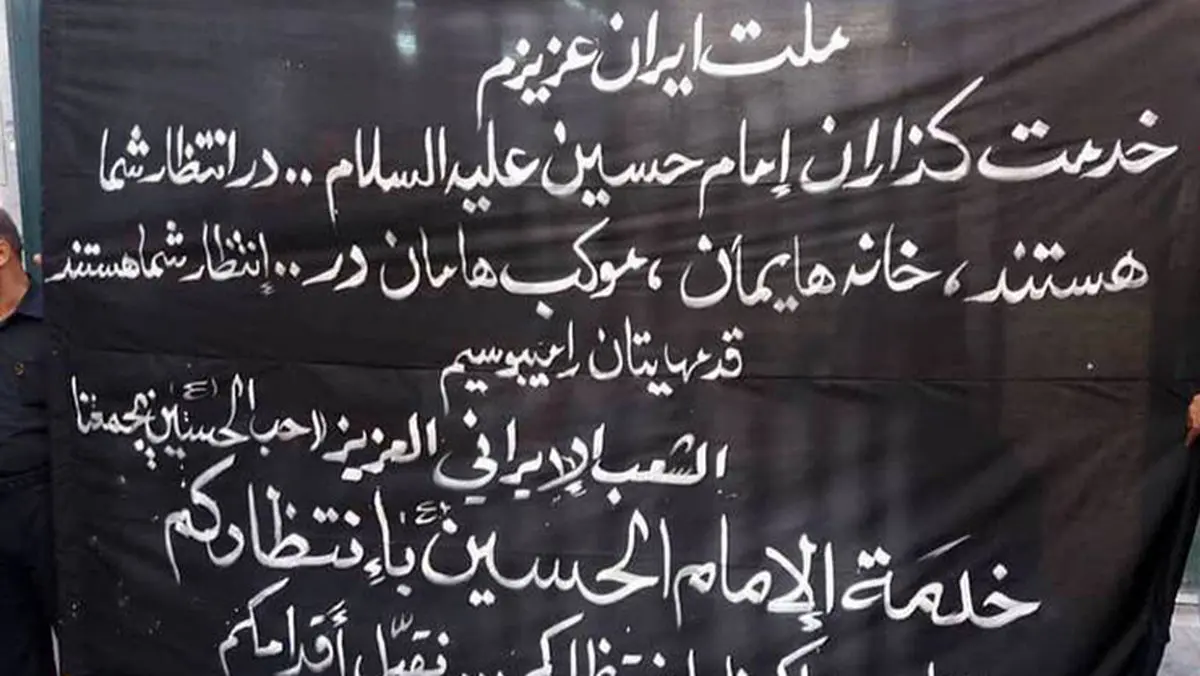 ملت ایران عزیزم
خدمت کذاران إمام حسین علیه السلام .. در انتظار شما
هستند ، خانه هایمان ، موکب هامان در .. إنتظار شما هستند
قدمهایتان را میبوسیم
الشعب الإيراني العزيز لاحب الحسين (ع) يجمعنا
خدمة الإمام الحسين (ع) بإنتظاركم
نقبّل أقدامكم